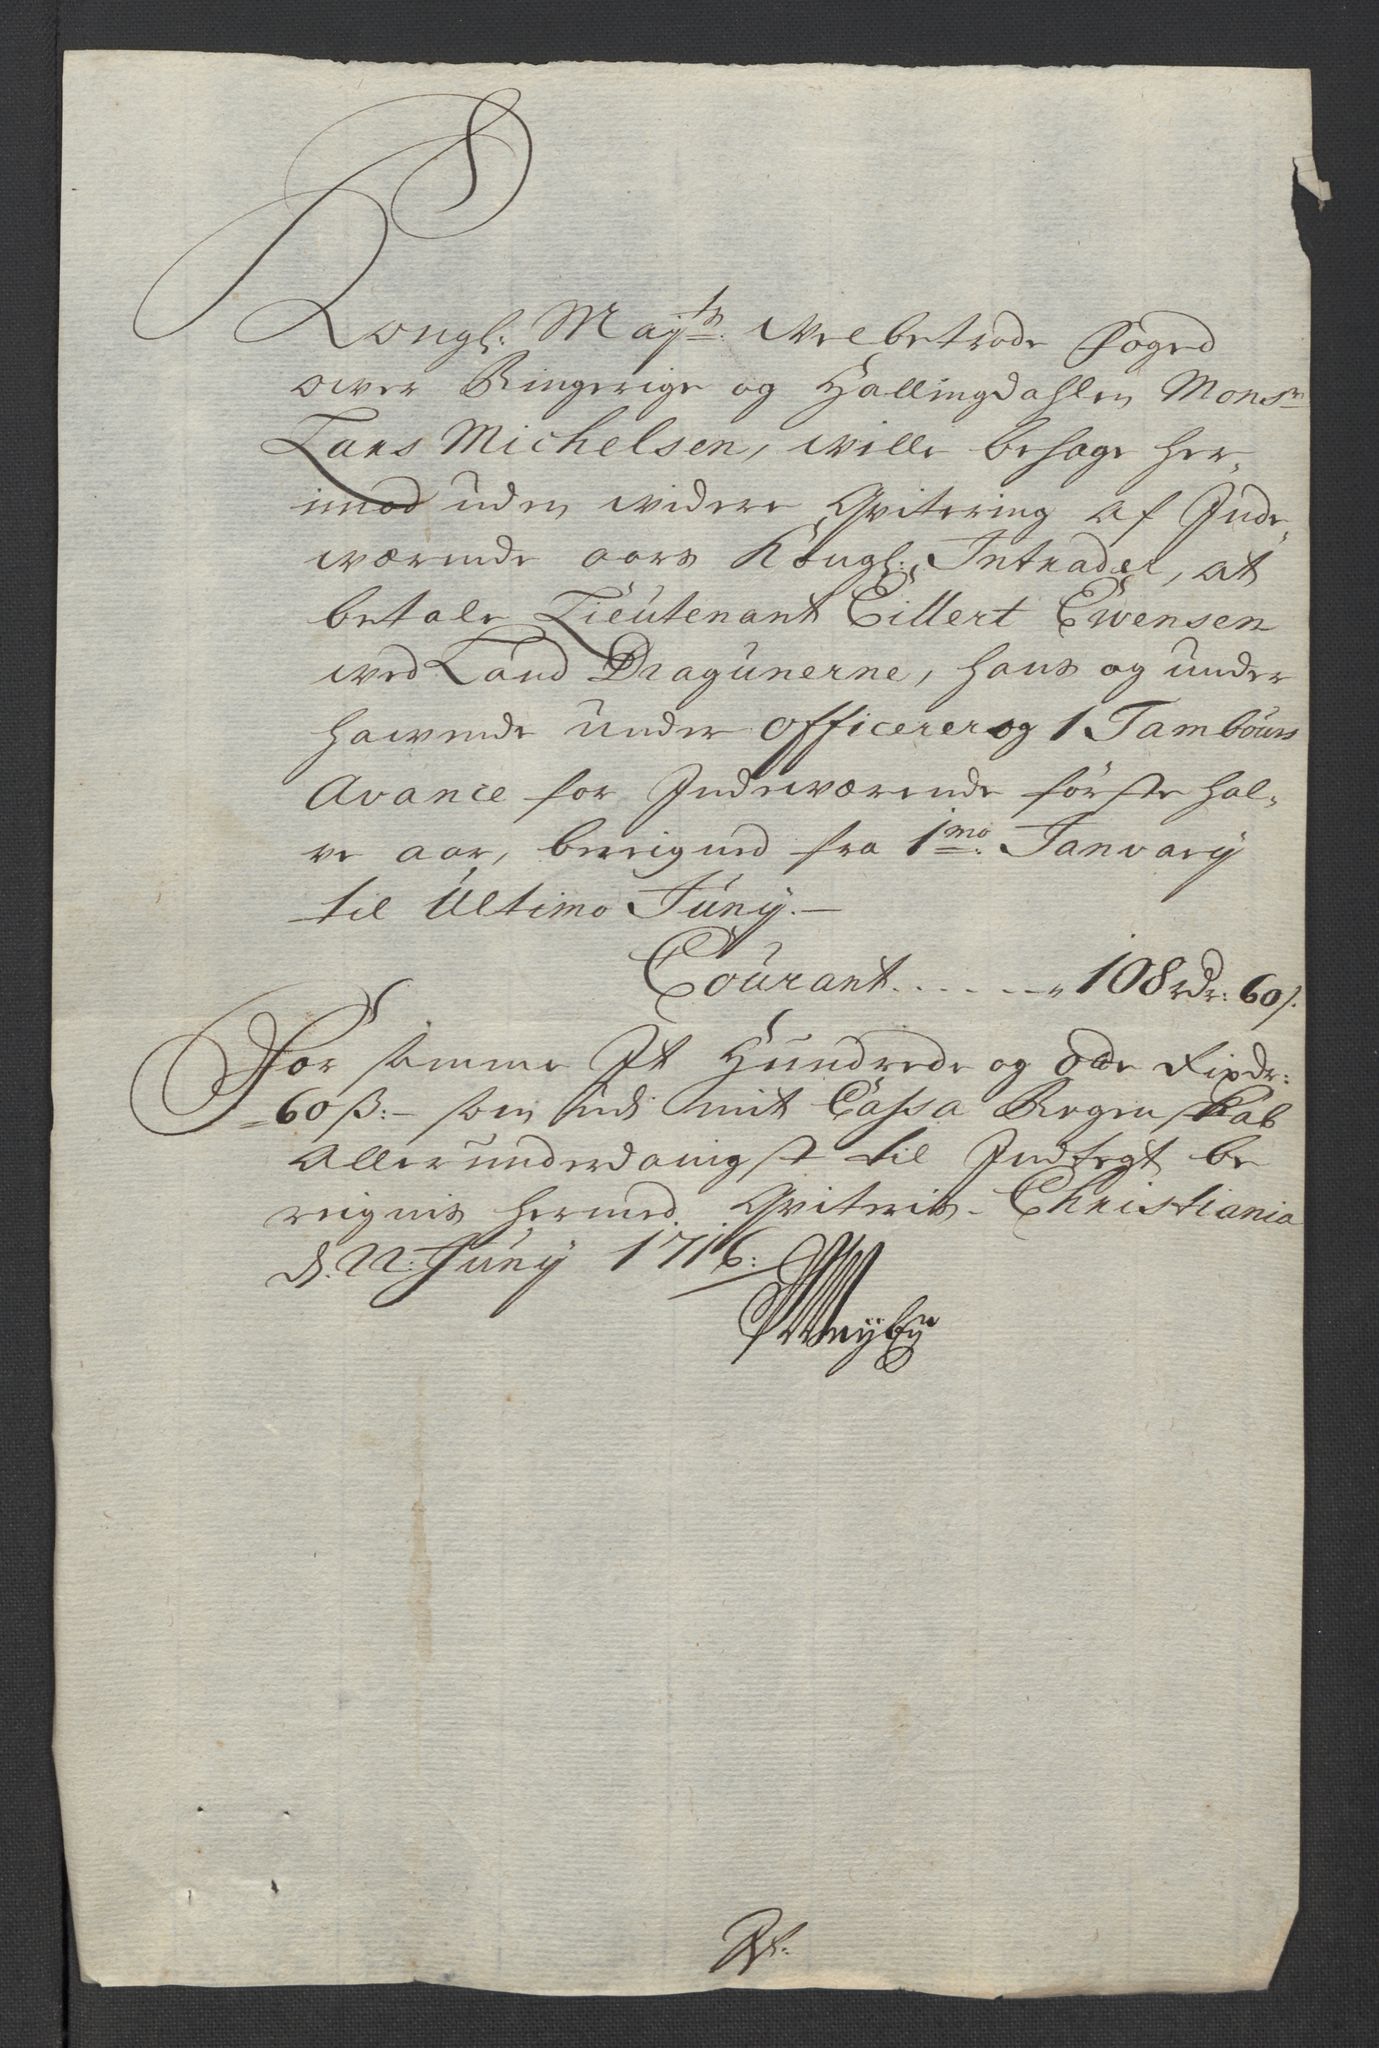 Kongl: Maÿts. Welbetrode Foged
over Ringerige og Hallingdahlen Monsr
Lars Michelsen, wille behage her„
imod uden widere Qvitering af Inde„
wærende aars Kongl: Intrader, at
betale Lieutenant Eillert Ewensen
wed Land Dragunerne, hans og under
hawende Under officerer og 1 Tambours
Avance for Indewærende første hal„
ve aar, bereigned fra 1mo: Janvarÿ
til Ultimo Junÿ.—
Courant . . . . . „ 108 rdr: 60 s.
For somme It Hundrede og otte Rixdr:
60 ß:— som udi mit Cassa Regenskab
Allerunderdanigst til Indtegt be
reignis hermed Qviteris. Christiania
d. 22: Junÿ 1716: